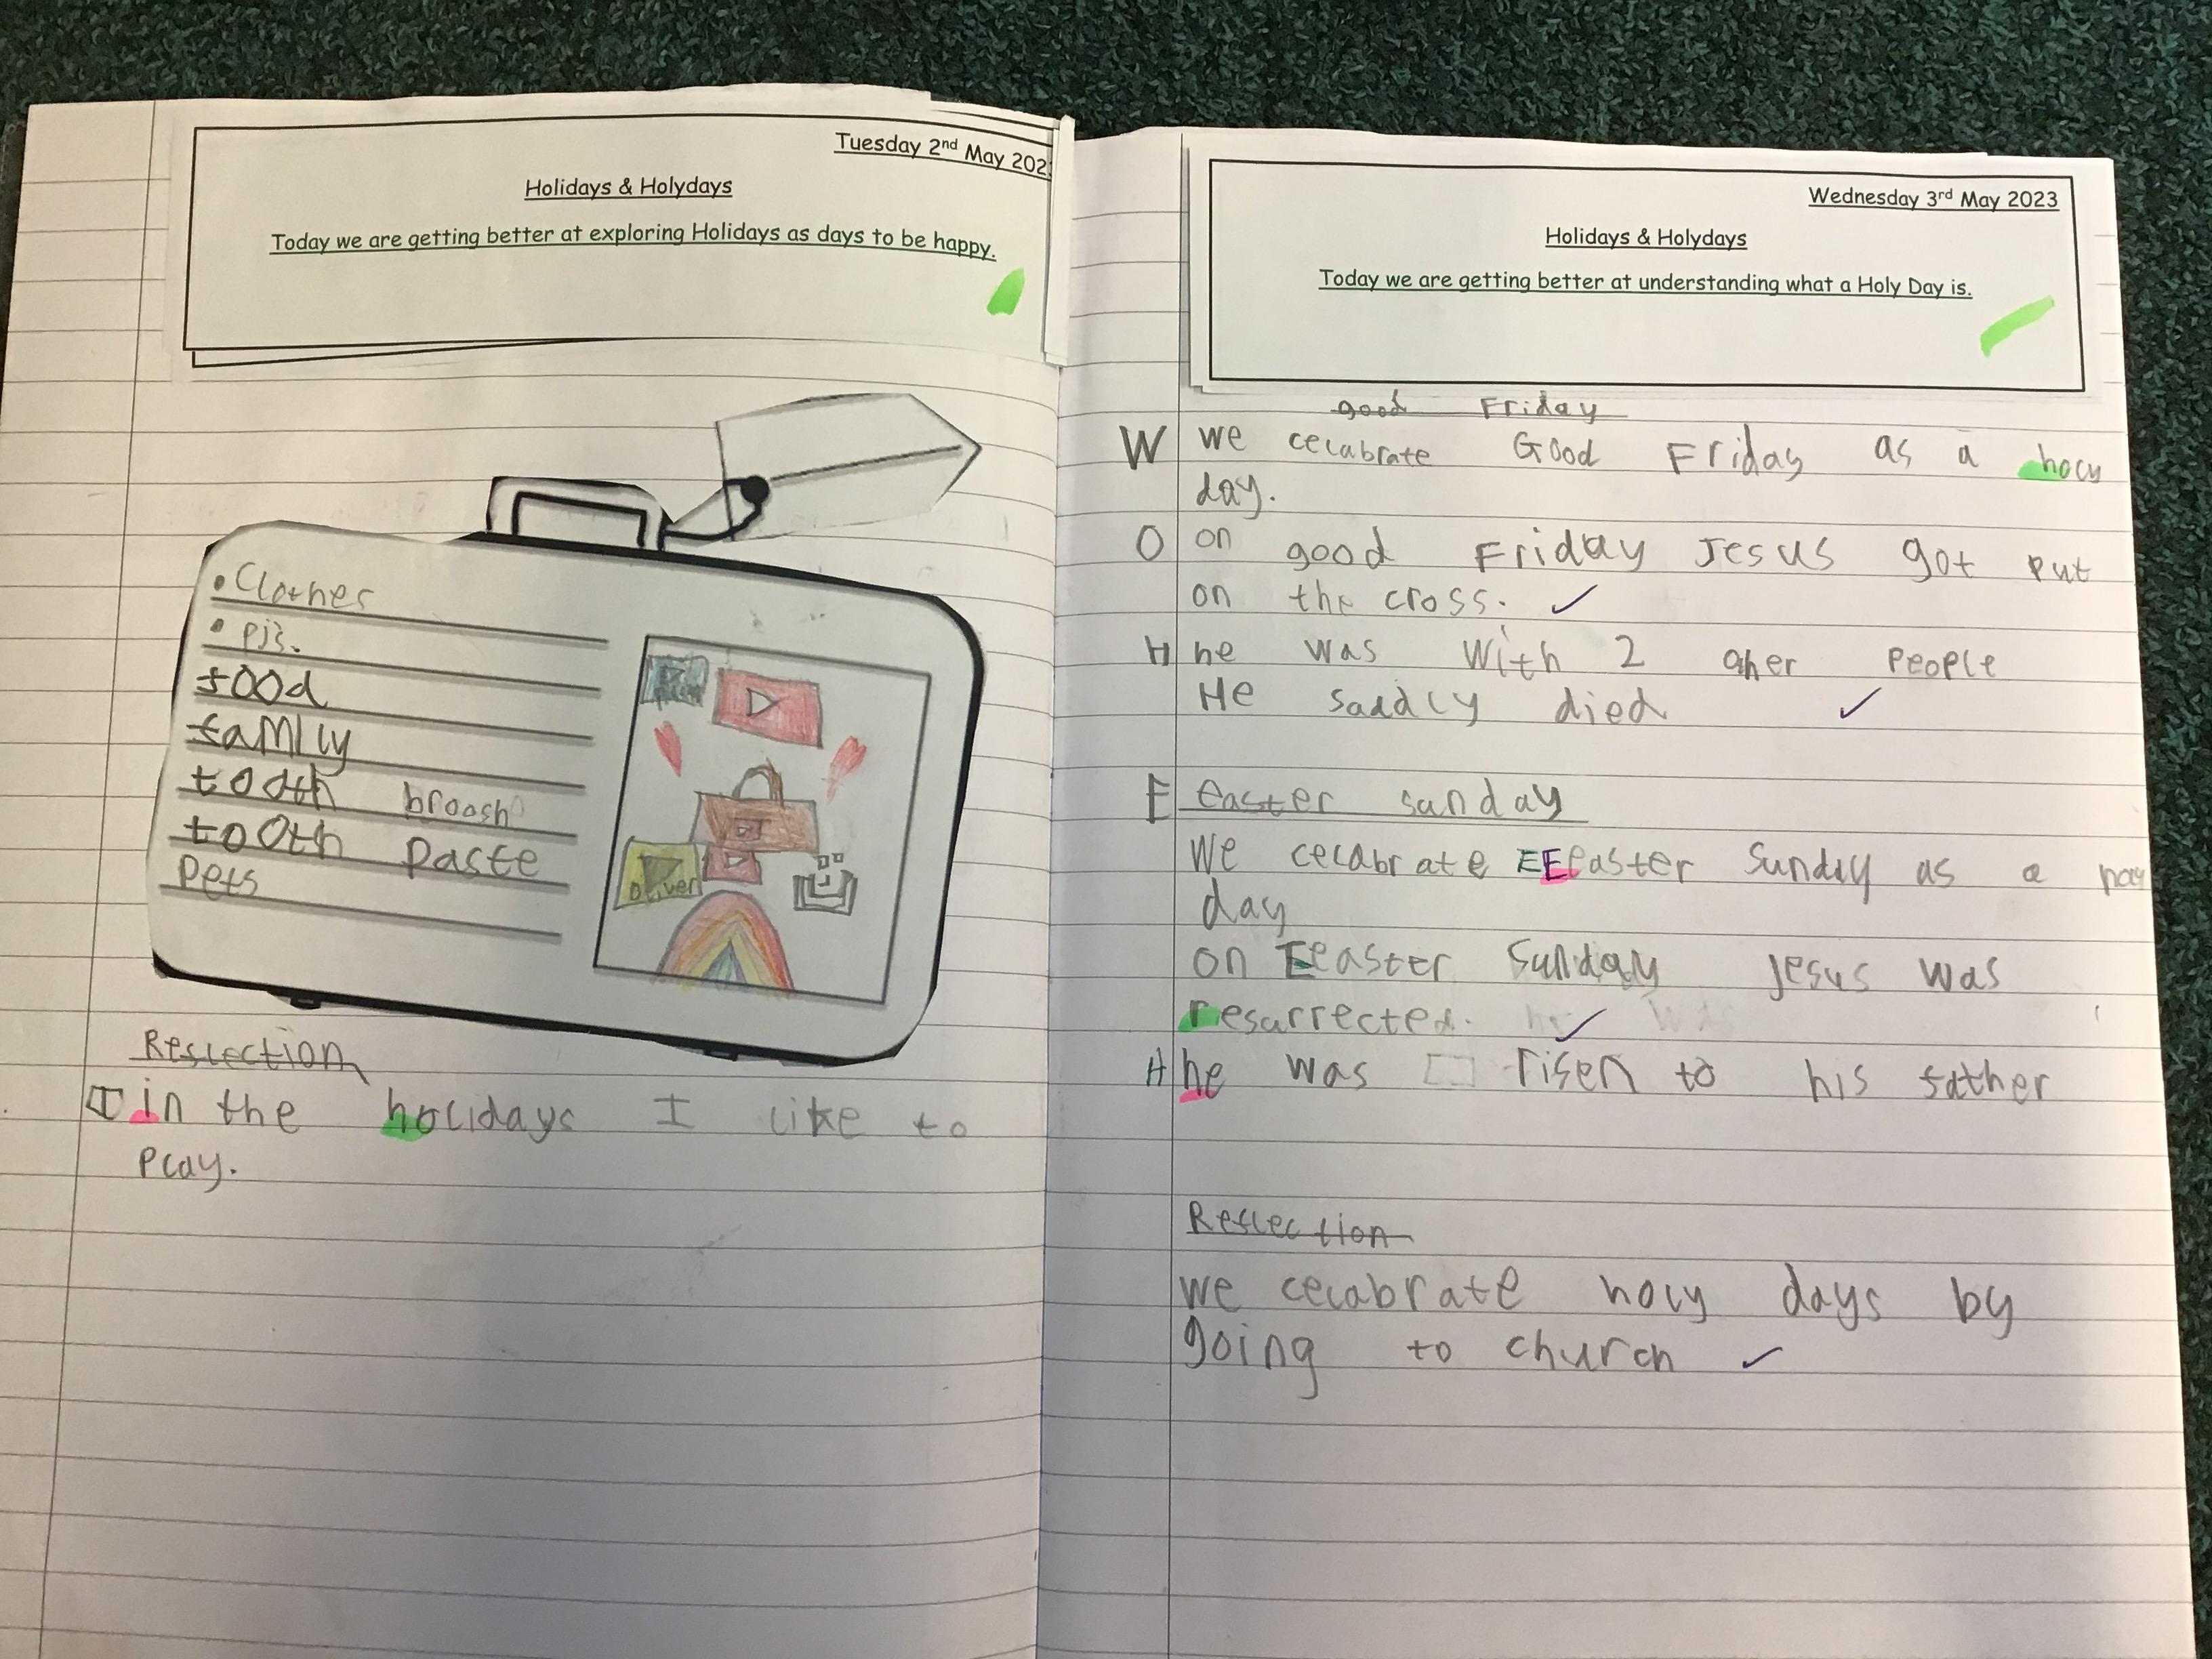 Tuesday 2nd May 202
Holidays & Holydays
Today we are getting better at exploring Holidays as days to be happy.
• Clothes
• PJs.
food
famlly
tooth broosh
tooth paste
Pets
Oliver
Reflection
I in the holidays I like to
Play.
Wednesday 3rd May 2023
Holidays & Holydays
Today we are getting better at understanding what a Holy Day is.
good Friday
W we celabrate Good Friday as a holy
day.
O on good Friday Jesus got put
on the cross.
H he was with 2 oher People
He saddly died
E easter sunday
We celabrate Easter Sunday as a holy
day
on Easter Sunday Jesus was
resurrected.
H he was risen to his father
Reflection
we celabrate holy days by
going to church